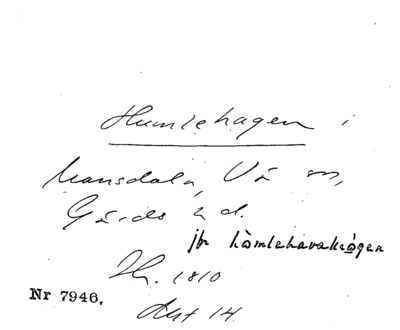 Humlehagen i
Mansdala, Vä sn,
Gärds hd.
jfr hömlehavakrógen
Nr 7946.
Akt 14.